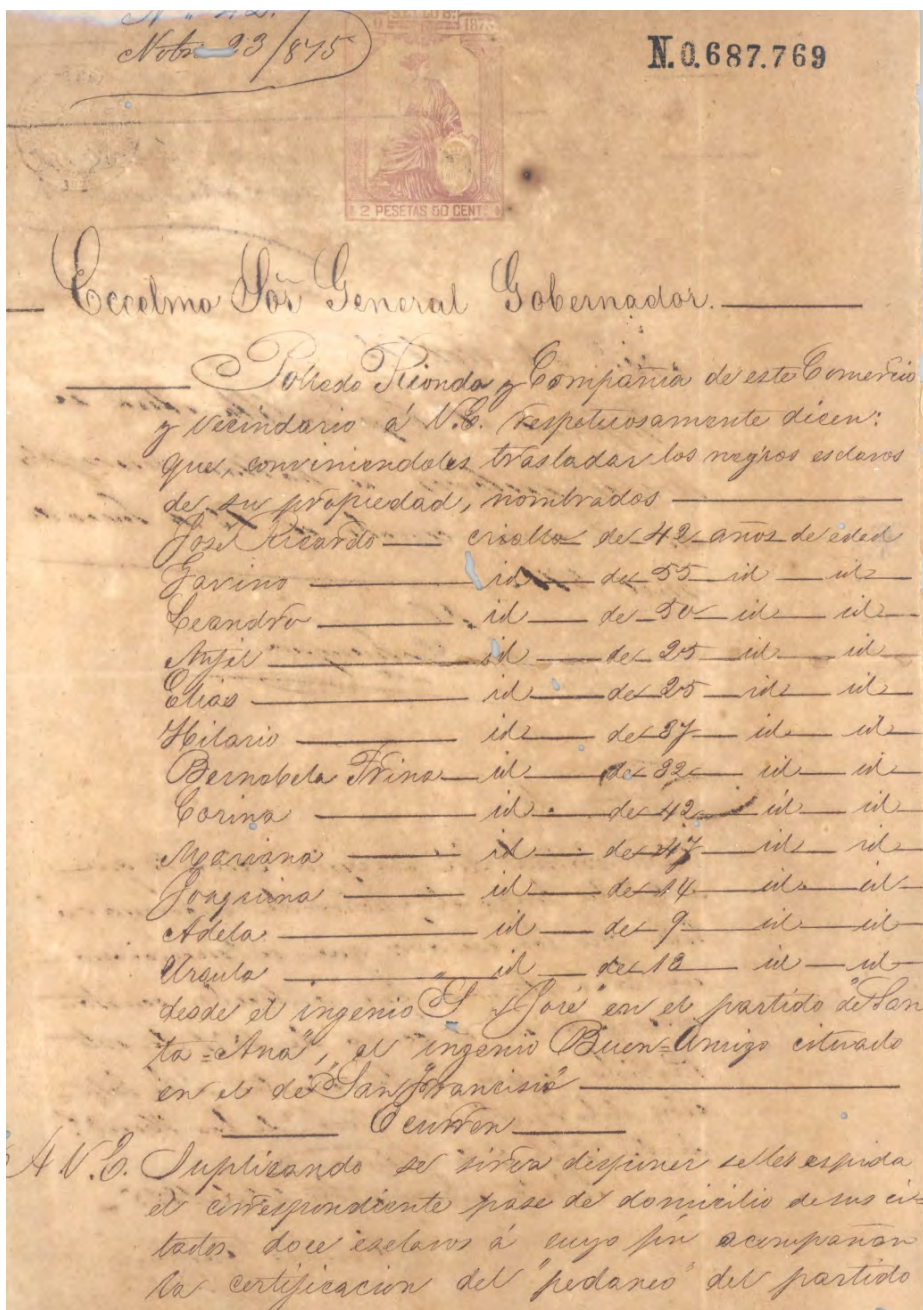 Nobre 23/875
N.0.687.769
2 PESETAS 50 CENT.
Eccelmo Sor General Gobernador.
Polledo Rionda y Compañia de este Comercio
y vecindario á V.E. respetuosamente dicen:
que, conviniendoles trasladar los negros esclavos
de su propiedad, nombrados
José Ricardo criollo de 42 años de edad
Favino id de 55 id id
Leandro id de 50 id id
id de 25 id id
Elias id de 25 id id
Hilario id de 37 id id
Bernabela Trina id de 32 id id
Corina id de 42 id id
Mariana id de 47 id id
Joaquina id de 14 id id
Adela id de 9 id id
Ursula id de 12 id id
desde el ingenio "S. José" en el partido "de San
ta=Ana", al ingenio Buen=Amigo cituado
en el de "San Francisco"
Ocurren
A V.E. Suplicando se sirva disponer se les espida
el correspondiente pase de domicilio de sus ci=
tados doce esclavos á cuyo fin acompañan
la certificacion del "pedaneo" del partido